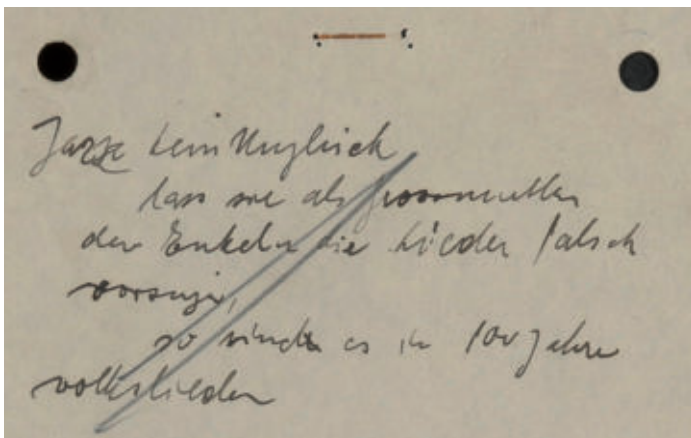 Jazz kein Unglück
lass sie als Grossmutter
den Enkeln die Lieder falsch
vorsingen,
so sind es in 100 Jahre
volkslieder